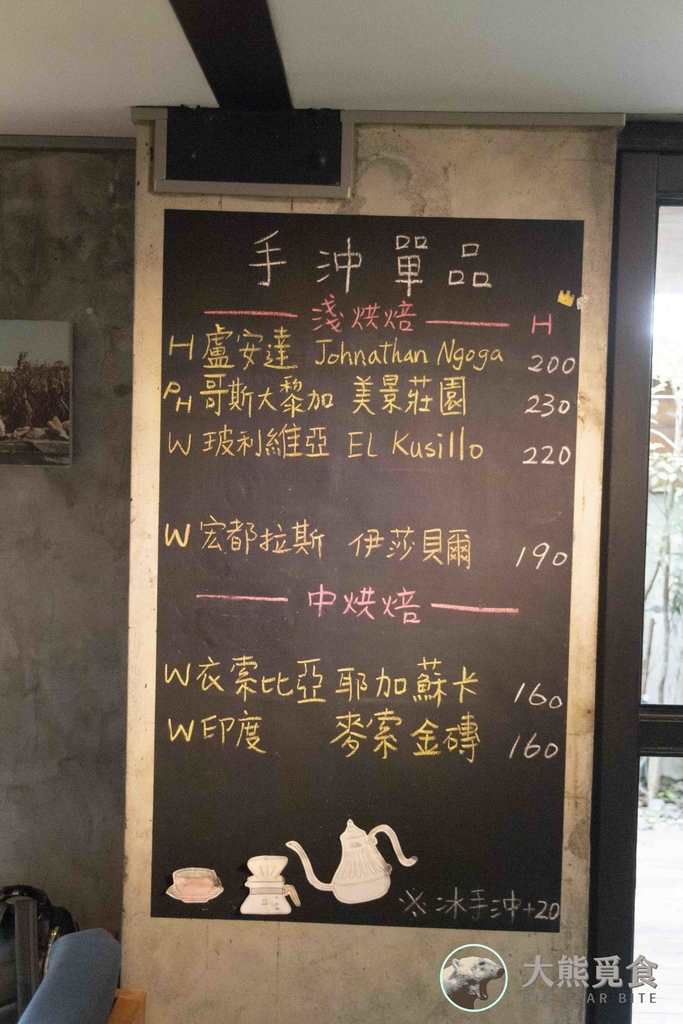 手沖單品
淺烘焙 H
H 盧安達 Johnathan Ngoga 200
PH 哥斯大黎加 美景莊園 230
W 玻利維亞 EL Kusillo 220
W 宏都拉斯 伊莎貝爾 190
中烘焙
W 衣索比亞 耶加蘇卡 160
W 印度 麥索金磚 160
※冰手沖+20
大熊覓食
BIG BEAR BITE